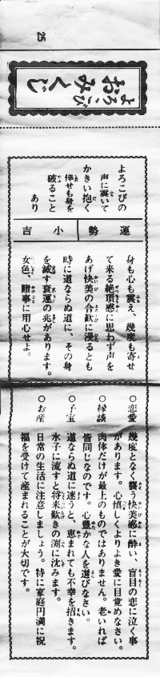 25
よろこび
おみくじ
よろこびの
声に驚いて
かきい抱く
倖せも身を
破ること
あり
運勢
小吉
身も心も震え、幾度も寄せ
て来る絶頂感に思わず声を
あげ快美の合歓に浸るとも
時に道ならぬ道に、その身
を滅す衰運の兆があります。
女色、賭事に用心せよ。
○恋愛 幾度となく襲う快感に酔い、盲目の恋に泣く事
があります。心惜しくよりよき愛に目覚めなさい。
○縁談 肉体だけが最上のものではありません。老いれば
皆同じなのです。心豊かな人を選びなさい。
○子宝 道ならぬ道に迷うと、恵まれても不幸を招きます。
水子に流すと将来歎きの淵に沈みます。
○お産 日常の生活に注意しましょう。特に家庭円満に祝
福を受けて産まれることが大切です。